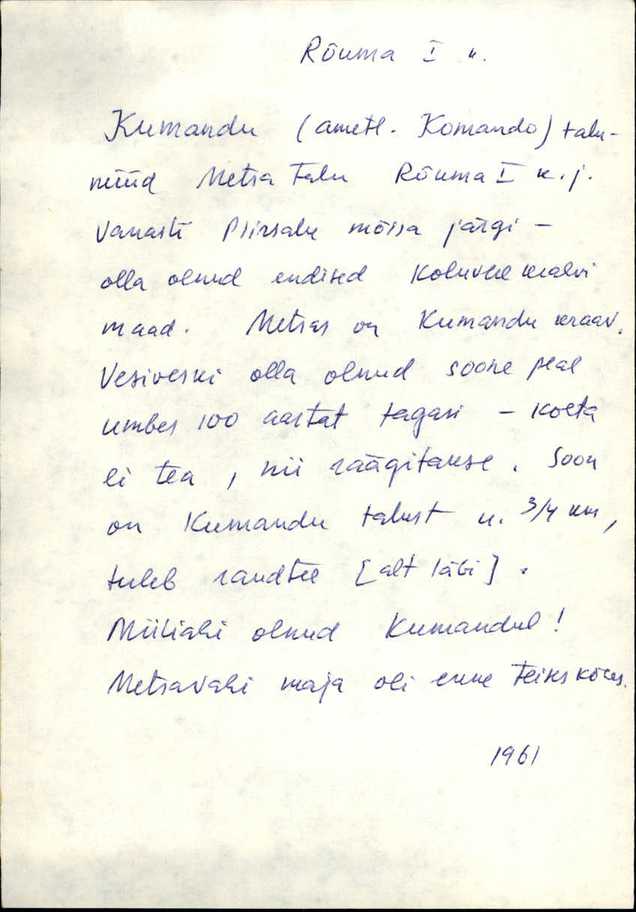 Rõuma I k.
Kumandu (ametl. Komando) talu-
nüüd Metsa talu Rõuma I k. j.
Vanasti Piirsalu mõisa järgi –
olla olnud endised Koluvere kralvi
maad. Metsas on Kumandu kraav.
Vesiveski olla olnud soone peal
umbes 100 aastat tagasi – kohta
ei tea, nii räägitakse. Soon
on Kumandu talust u. 3/4 km,
tuleb raudtee [alt läbi].
Miiliahi olnud Kumandul!
Metsavahi maja oli enne teises
1961